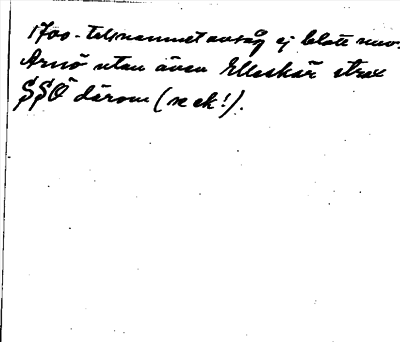 1700-talsnamnet avsåg ej blott nuv.
Arnö utan även Elleskär strax
SSÖ därom (se ek!).